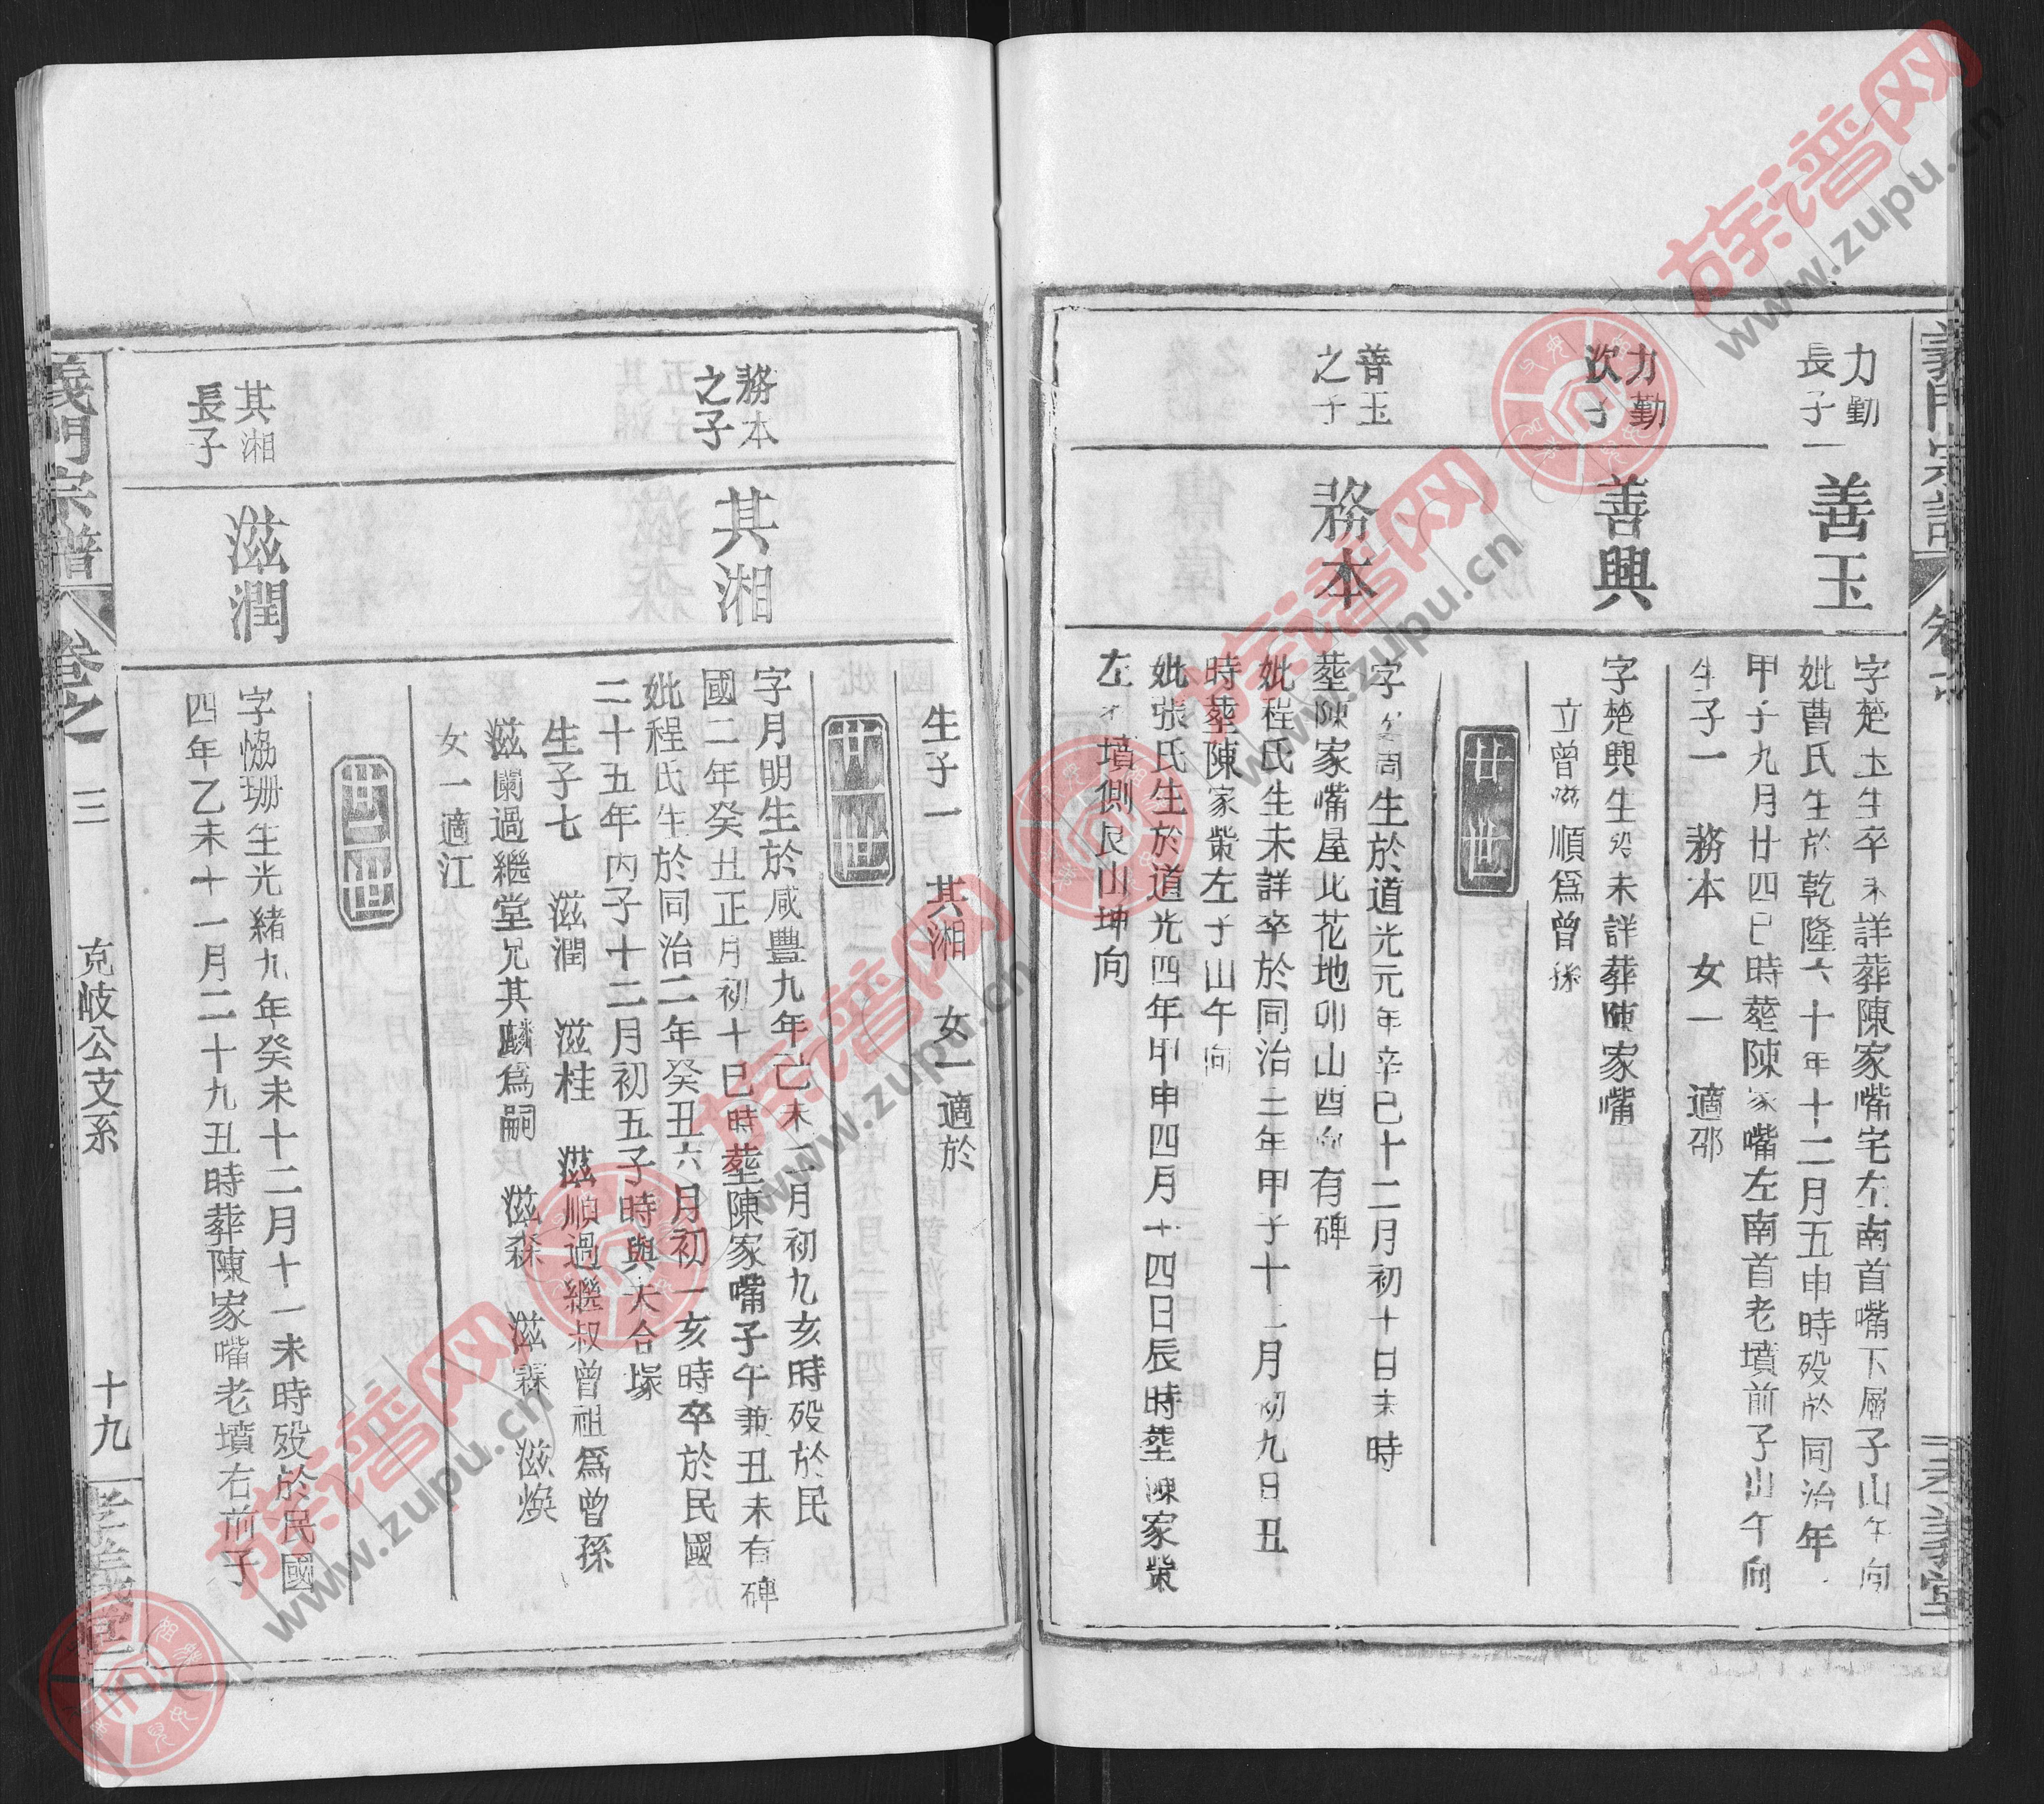 力勤
長子
善玉
字楚玉生卒未詳葬陳家嘴宅左南首嘴下層子山午向
妣曹氏生於乾隆六十年十二月五申時殁於同治年
甲子九月廿四巳時塟陳家嘴左南首老墳前子山午向
生子一 務本 女一 適邵
力勤
次子
善興
字楚興生殁未詳葬陳家嘴
立曾滋順爲曾孫
廿世
善玉
之子
務本
字 周生於道光元年辛巳十二月初十日未時
塟陳家嘴屋北花地卯山酉向有碑
妣程氏生未詳卒於同治三年甲子十二月初九日丑
時塟陳家棠左子山午向
妣張氏生於道光四年甲申四月十四日辰時塟陳家棠
左 墳側艮山坤向
生子一 其湘 女一適於
廿一世
務本
之子
其湘
字月明生於咸豐九年己未二月初九亥時殁於民
國二年癸丑正月初十巳時塟陳家嘴子午兼丑未有碑
妣程氏生於同治二年癸丑六月初一亥時卒於民國
二十五年丙子十二月初五子時與大合塚
生子七 滋潤 滋桂 滋順過繼叔曾祖爲曾孫
滋闌過繼堂兄其麟爲嗣 滋森 滋霖 滋焕
女一適江
廿二世
其湘
長子
滋潤
字恊珊生光緒九年癸未十二月十一未時殁於民國
四年乙未十一月二十九丑時葬陳家嘴老墳右前子
義門宗譜 卷之一 三 克岐公支系 十九 孝義堂